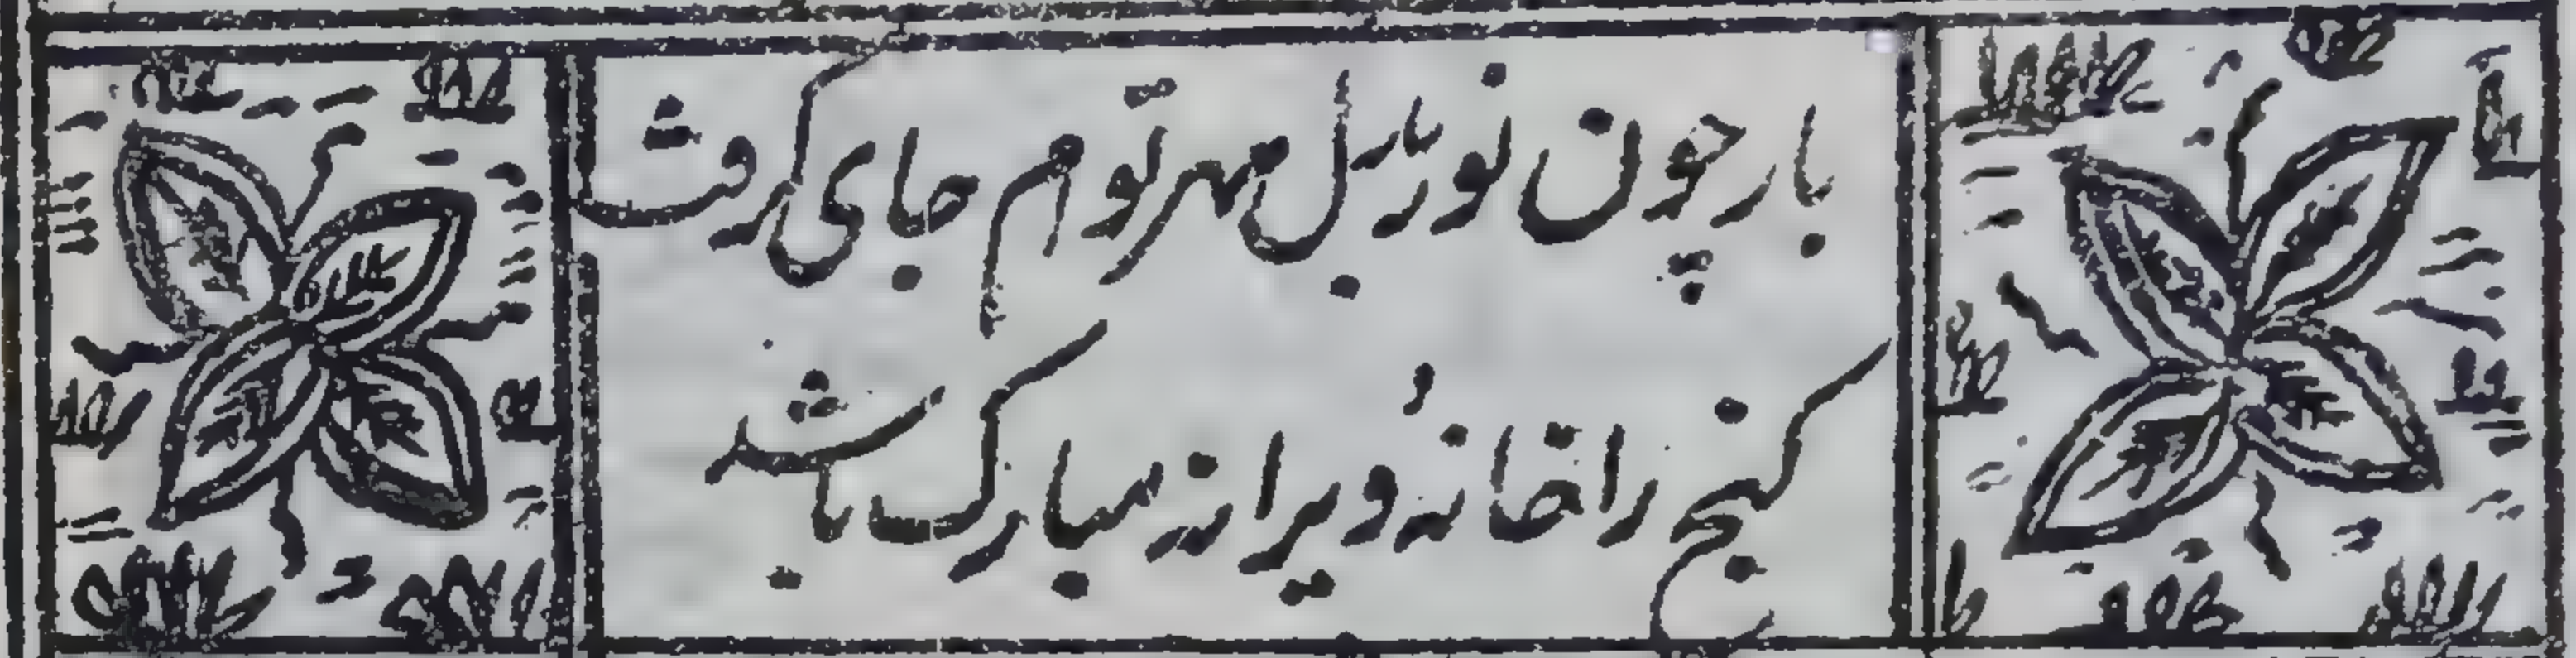 بار چون نور بدل مهر توام جای کرفت
کنج را خانۀ ویرانه مبارک باشد